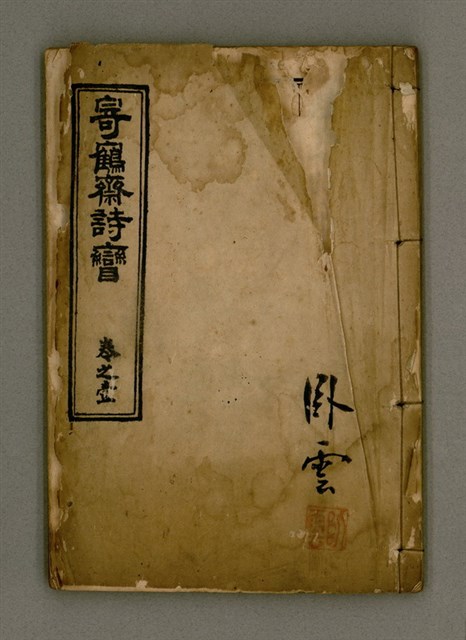 寄鶴齋詩矕
卷之壹
卧雲